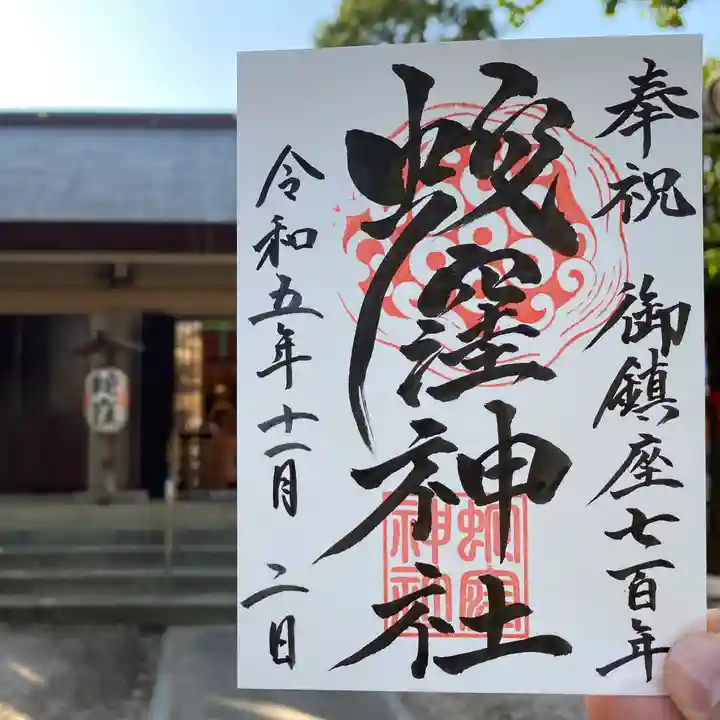 奉祝 御鎮座七百年
蛇窪神社
令和五年十一月二日
蛇窪神社
蛇窪